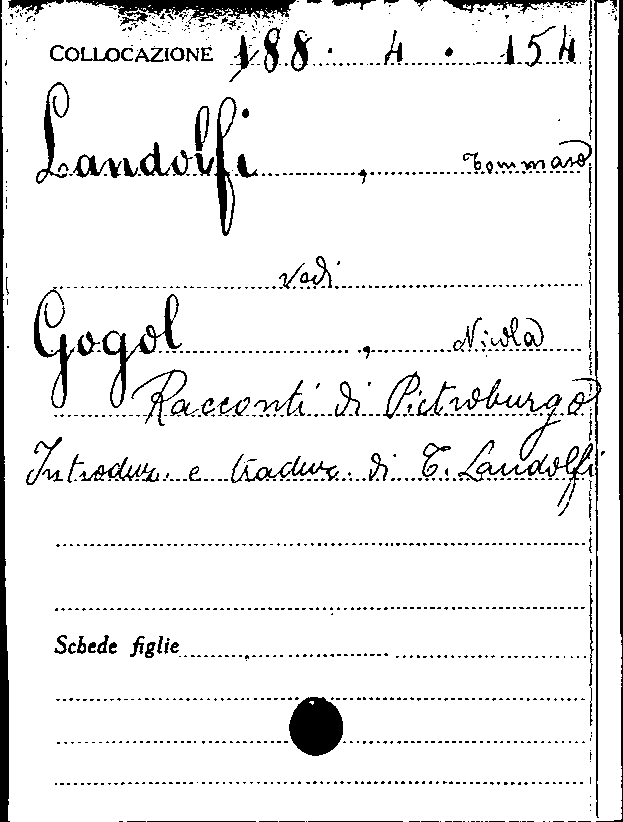 COLLOCAZIONE 188. 4 . 154
Landolfi, Tommaso
vedi
Gogol, Nicola
Racconti di Pietroburgo
Introduz. e traduz. di T. Landolfi
Schede figlie